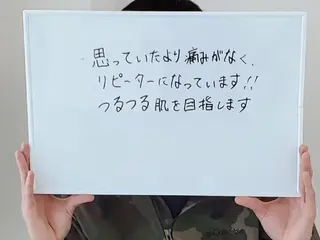 思っていたより痛みがなく、
リピーターになっています!!
つるつる肌を目指します